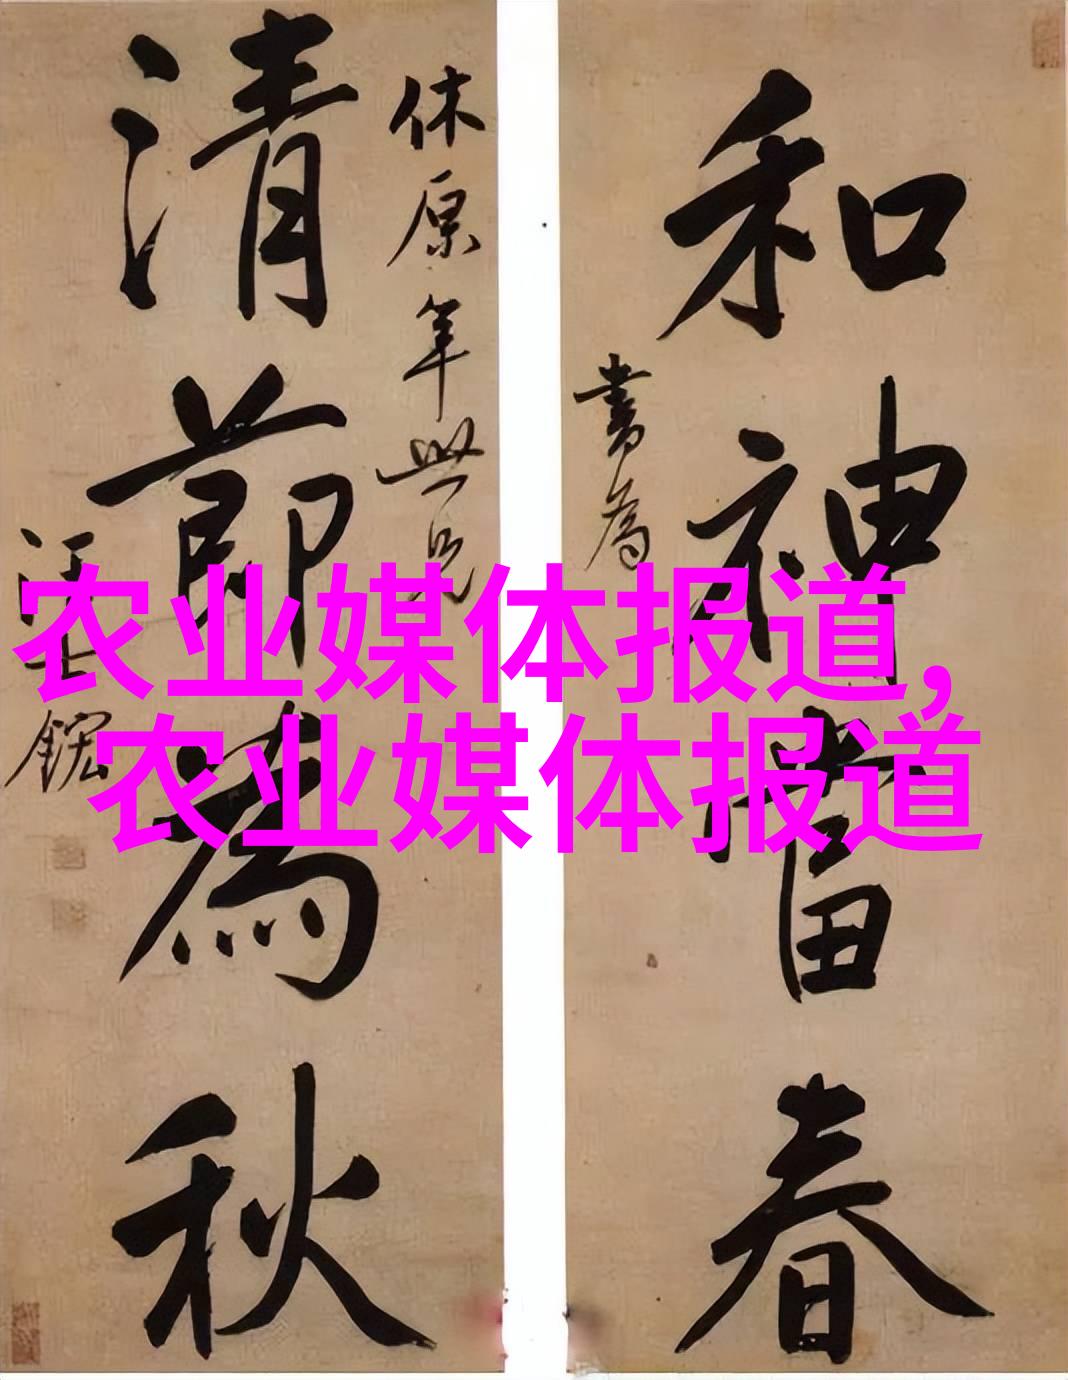 和神當春
書為
休原年世兄
清節為秋
汪士鋐
农业媒体报道,
农业媒体报道